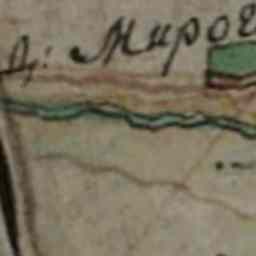 Д: Мироч